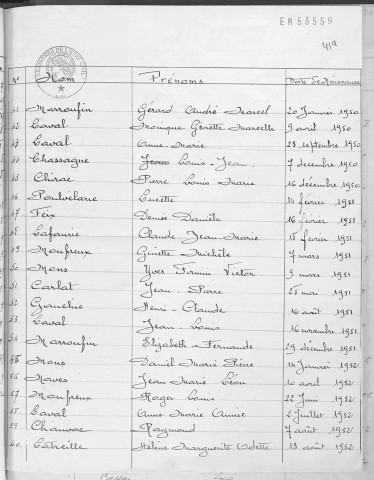 EM 53559
419
N° Nom Prénoms Date de Naissance
41 Marroufin Gérard André Marcel 20 Janvier 1950
42 Laval Monique Ginette Marcelle 9 avril 1950
43 Laval Anne-Marie 23 septembre 1950
44 Chassagne Louis-Jean 7 décembre 1950
45 Chirac Pierre Louis Marie 16 décembre 1950
46 Lucette 14 février 1951
47 Feix Denise Danièle 16 février 1951
48 Lafaurie Claude Jean-Marie 18 février 1951
49 Moufreux Ginette Michèle 7 mars 1951
50 Mons Yves Firmin Victor 9 mars 1951
51 Carlat Jean-Pierre 25 mai 1951
52 Henri-Claude 16 août 1951
53 Laval Jean-Louis 16 novembre 1951
54 Marroufin Elizabeth-Fernande 29 décembre 1951
55 Mons Daniel Marie Pierre 14 Janvier 1952
56 Naves Jean Marie Léon 10 avril 1952
57 Moufreux Roger Louis 22 Juin 1952
58 Laval Anne Marie Annie 2 Juillet 1952
59 Chauvac Raymond 7 août 1952
60 Catreille Hélène Marguerite Odette 13 août 1952